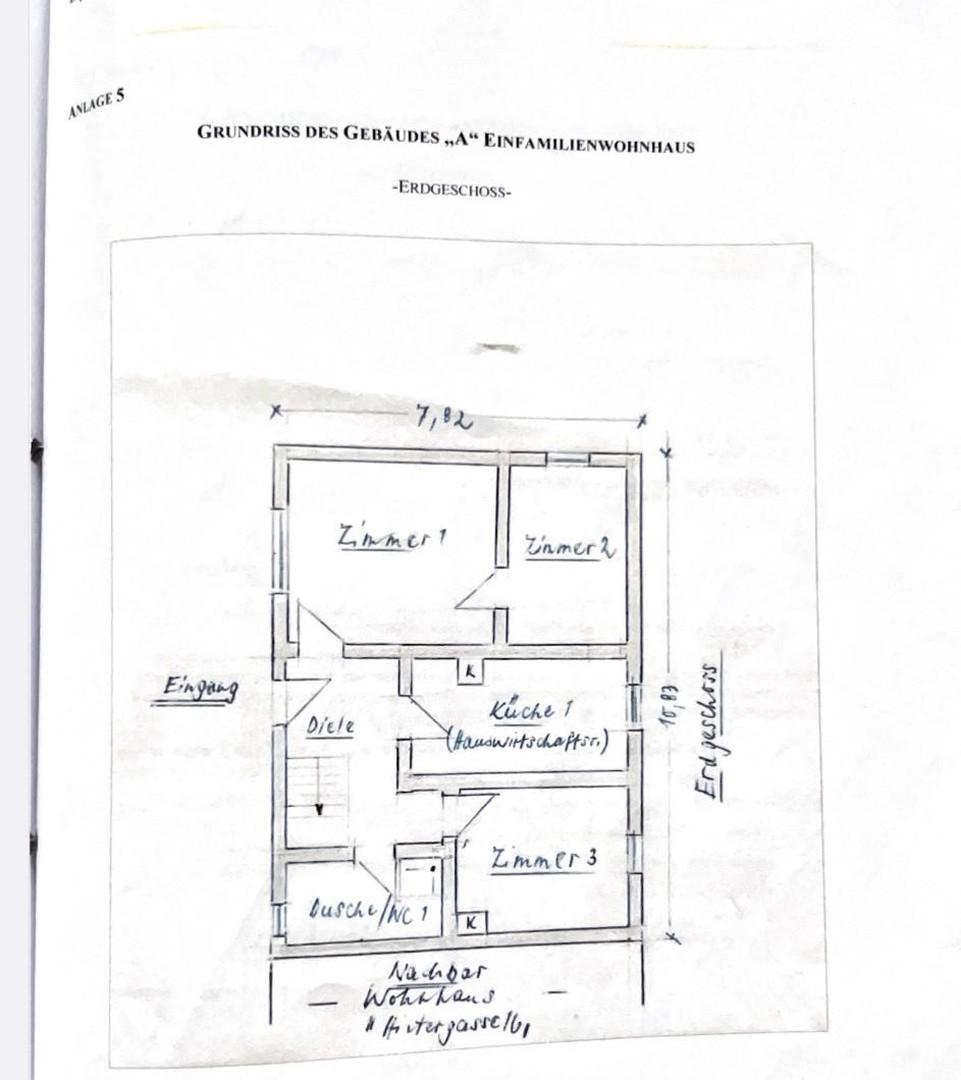 ANLAGE 5
GRUNDRISS DES GEBÄUDES „A“ EINFAMILIENWOHNHAUS
-ERDGESCHOSS-
7,82
Zimmer 1
Zimmer 2
K
Eingang
Diele
Küche 1
(Hauswirtschaftsr.)
10,83
Erdgeschoss
Zimmer 3
Dusche/WC 1
K
Nachbar
Wohnhaus